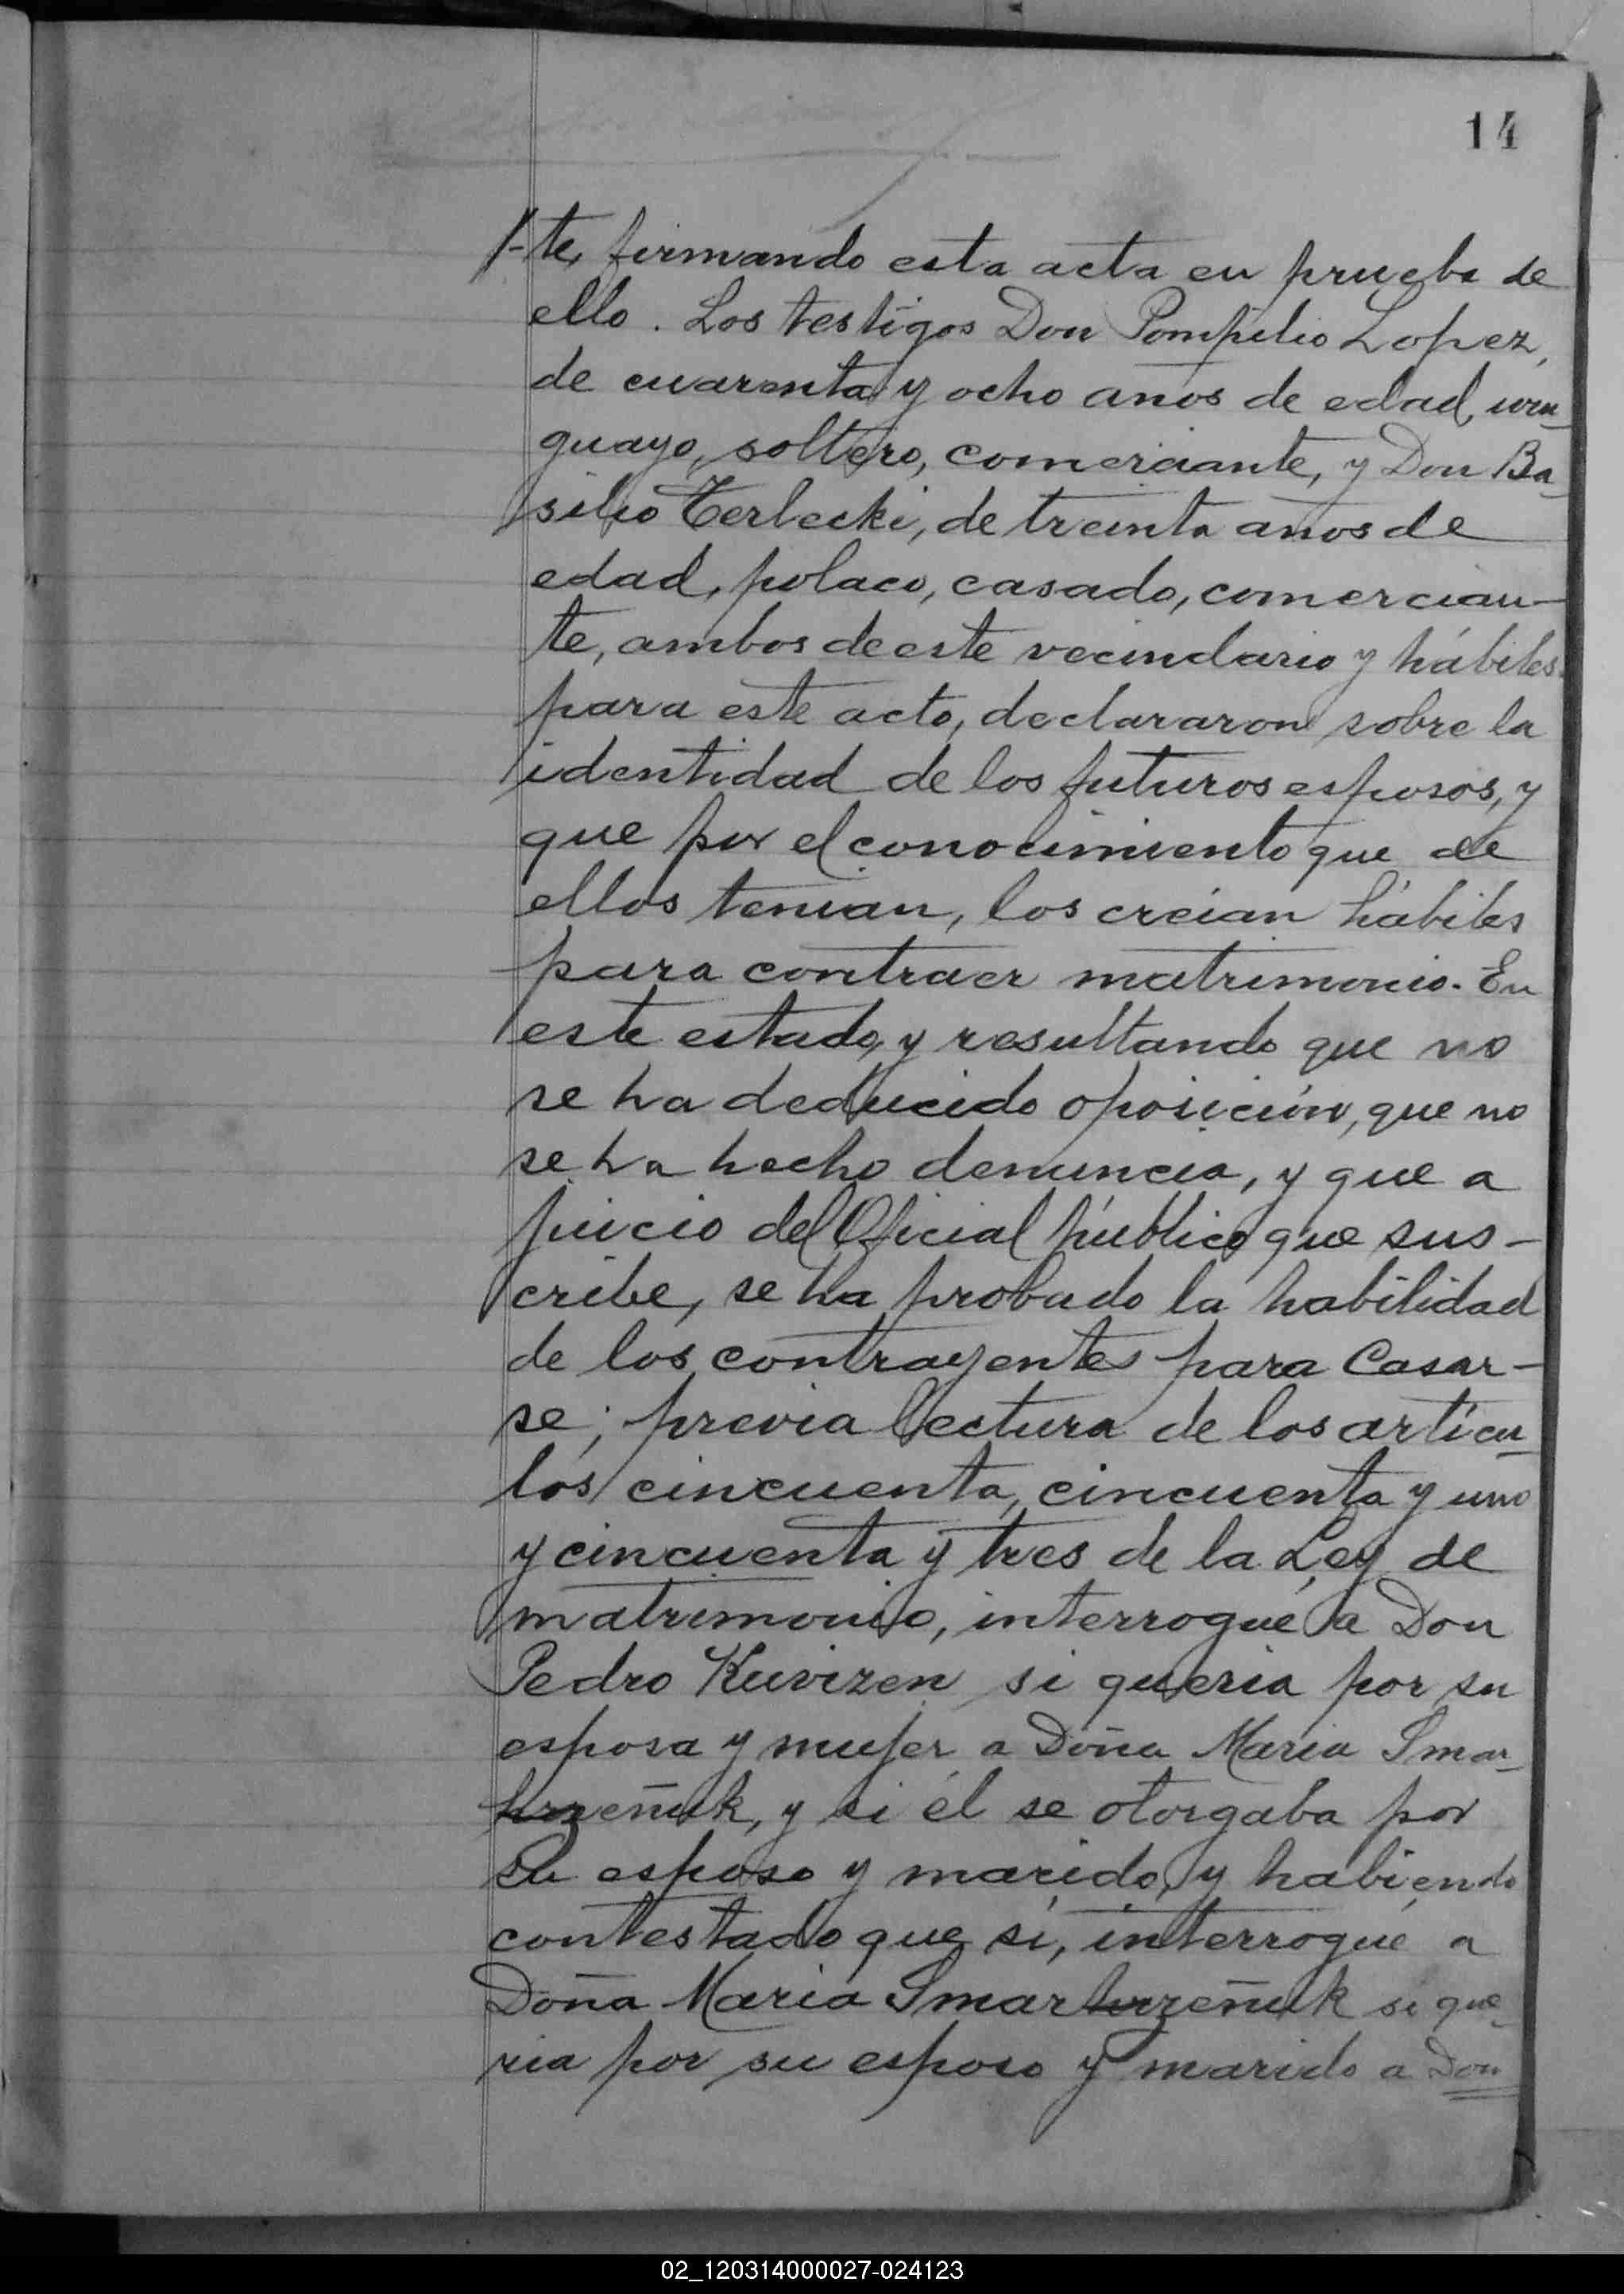 14
/-te, firmando esta acta en prueba de
ello. Los testigos Don Pompilio Lopez,
de cuarenta y ocho años de edad, uru-
guayo, soltero, comerciante, y Don Ba-
silio Terlecki, de treinta años de
edad, polaco, casado, comercian-
te, ambos de este vecindario y hábiles
para este acto, declararon sobre la
identidad de los futuros esposos, y
que por el conocimiento que de
ellos tenian, los creían hábiles
para contraer matrimonio. En
este estado, y resultando que no
se ha deducido oposición, que no
se ha hecho denuncia, y que a
juicio del Oficial público que sus-
cribe, se ha probado la habilidad
de los contrayentes para Casar-
se; previa lectura de los artícu-
los cincuenta, cincuenta y uno
y cincuenta y tres de la Ley de
matrimonio, interrogué a Don
Pedro Kuvizen si queria por su
esposa y mujer a Doña Maria
y si él se otorgaba por
su esposo y marido, y habiendo
contestado que sí, interrogué a
Doña Maria si que-
ria por su esposo y marido a Don
02_120314000027-024123